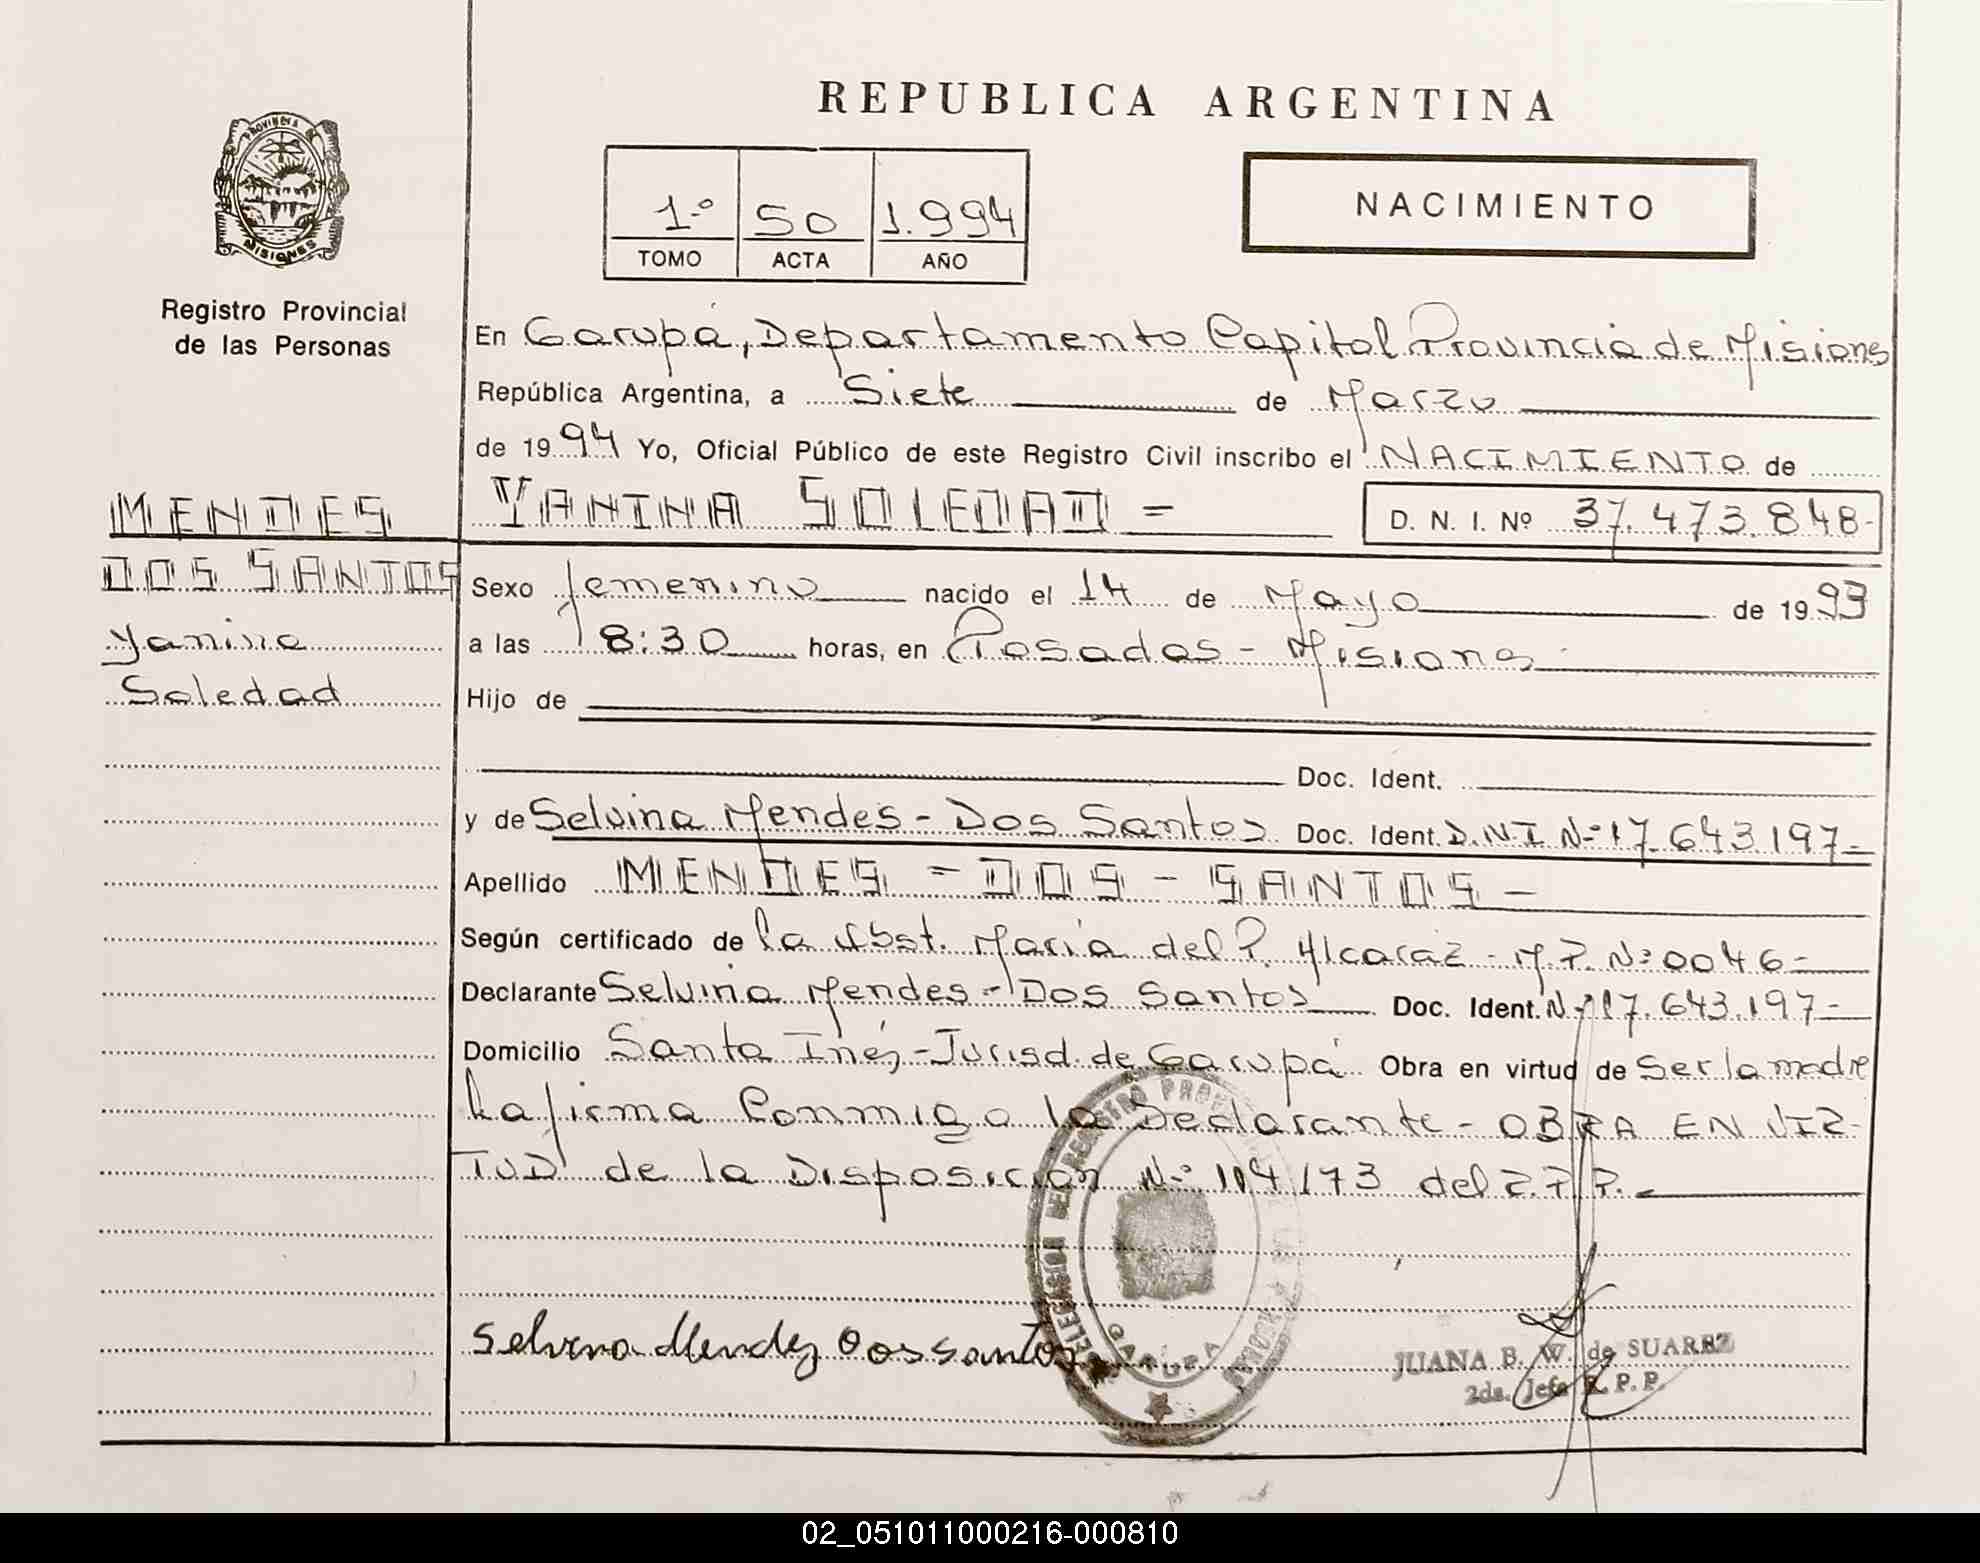 REPUBLICA ARGENTINA
PROVINCIA DE
MISIONES
Registro Provincial
de las Personas
1º 50 1.994
TOMO ACTA AÑO
NACIMIENTO
En Garupá, Departamento Capital Provincia de Misiones
República Argentina, a Siete de Marzo
de 1994 Yo, Oficial Público de este Registro Civil inscribo el NACIMIENTO de
MENDES
DOS SANTOS
Yanina
Soledad
YANINA SOLEDAD =
D. N. I. Nº 37.473.848-
Sexo femenino nacido el 14 de Mayo de 1993
a las 8:30 horas, en Posadas - Misiones
Hijo de
Doc. Ident.
y de Selvina Mendes - Dos Santos Doc. Ident. D.N.I Nº 17.643.197-
Apellido MENDES - DOS - SANTOS -
Según certificado de la Obst. María del P. Alcaraz - M.P. Nº 0046-
Declarante Selvina Mendes - Dos Santos Doc. Ident. Nº 17.643.197-
Domicilio Santa Inés - Jurisd. de Garupá Obra en virtud de Ser la madre
La firma Conmigo la Declarante - OBRA EN VIR-
TUD de la Disposición Nº 114/73 del R.P.P.
DELEGACION DEL REGISTRO PROVINCIAL DE LAS PERSONAS
GARUPA
Selvina Mendez Dos santos
JUANA B. W. de SUAREZ
2da. Jefe R. P. P.
02_051011000216-000810